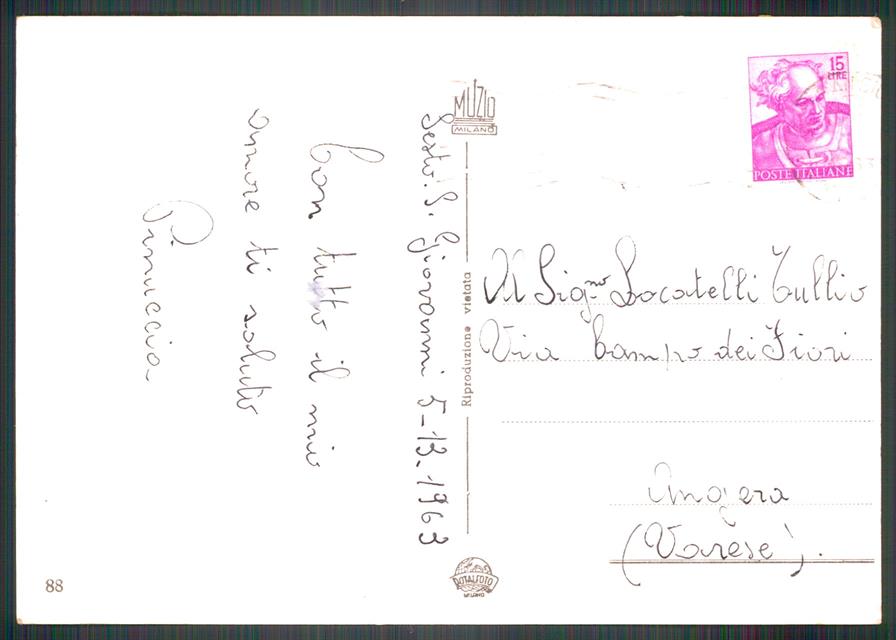 Sesto. S. Giovanni 5-13.1963
Con tutto il mio
amore ti saluto
Pinuccia
MUZIO
MILANO
Riproduzione vietata
ROTALFOTO
MILANO
88
15
LIRE
POSTE ITALIANE
Al Sig.no Locatelli Tullio
Via Campo dei Fiori
Angera
(Varese).